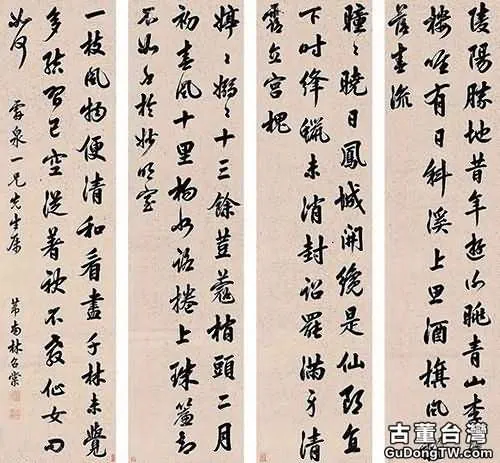 陵陽勝地昔年遊眺青山李
樓唯有日斜溪上思酒旗風
落春流
曈〻曉日鳳城開纔是仙郎直
下时絳蠟未消封詔罷滿身清
露立宮槐
娉〻嫋〻十三餘荳蔻梢頭二月
初春風十里揚州路捲上珠簾總
不如
一枝風物便清和看盡千林未覺
多結習已空從著袂不教仙女問
如何
霽泉一兄先生屬 芾南林召棠
古董台灣
GuDongTW.com